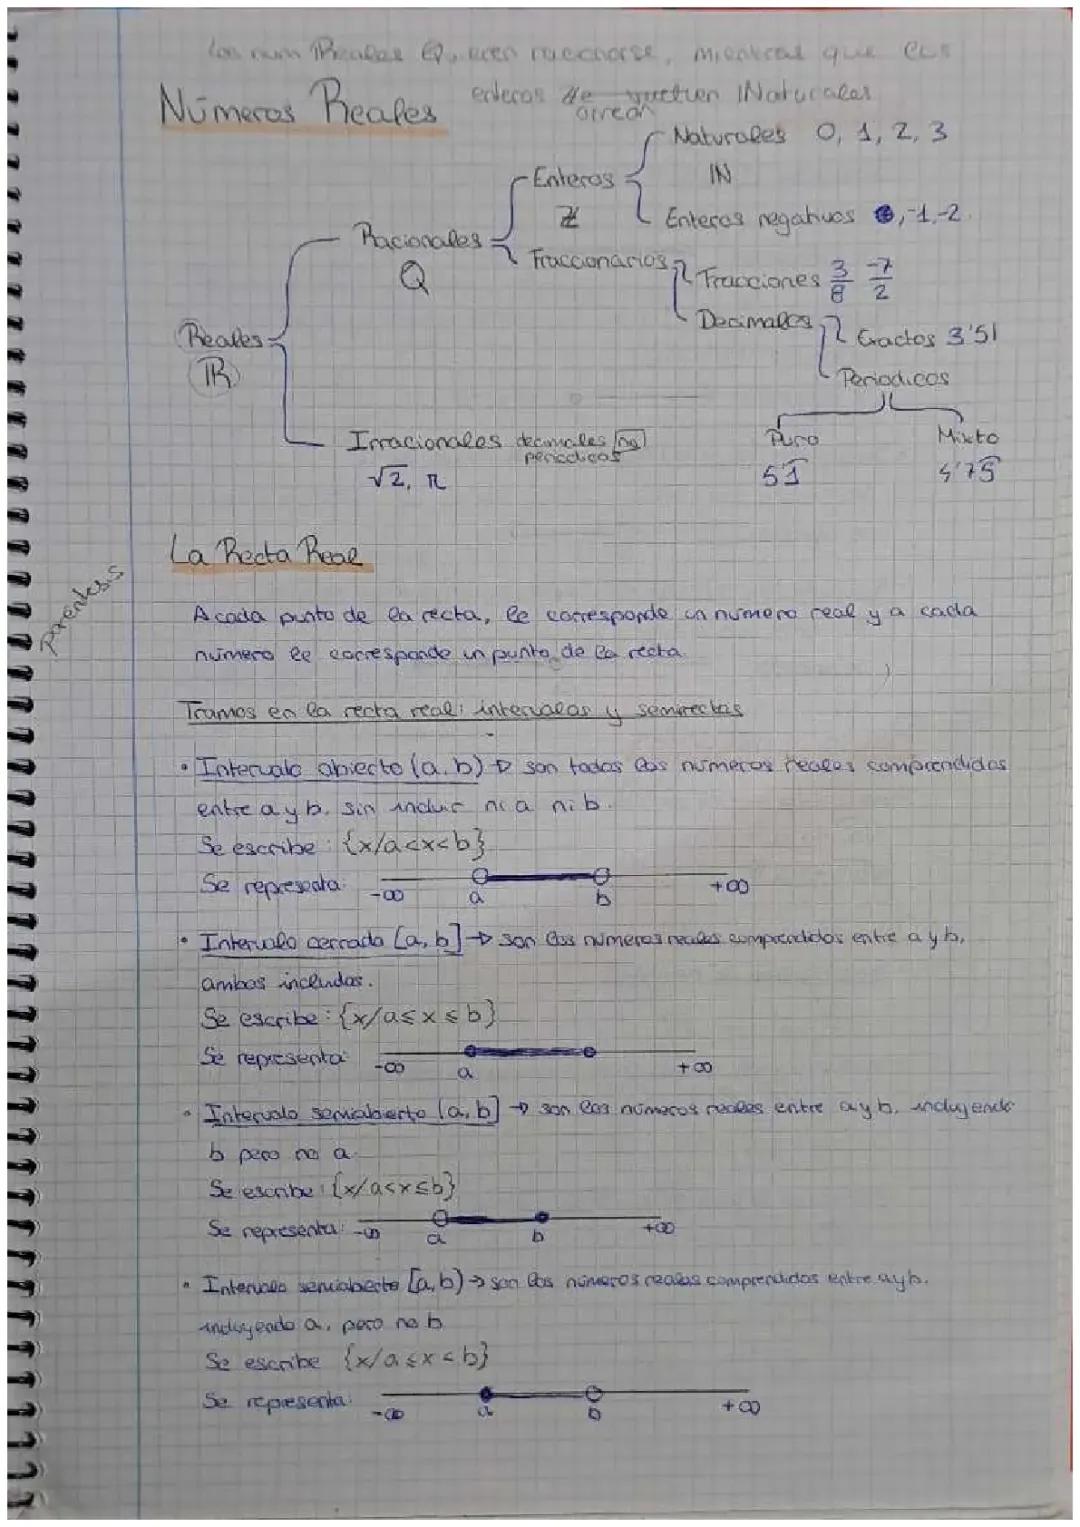 Los num Reales Quieren racionarse, mientras que los
enteros se vuelven Naturales
Números Reales
Naturales 0, 1, 2, 3
Enteros
ℕ
ℤ
Enteros negativos , -1, -2
Racionales
Fraccionarios
Q
Fracciones 3/8 -7/2
Decimales
Reales
Exactos 3'51
ℝ
Periodicos
Irracionales decimales no
periodicos
Puro
Mixto
√2, π
La Recta Real
Parentesis
A cada punto de la recta, le corresponde un número real y a cada
número le corresponde un punto de la recta.
Tramos en la recta real: intervalos y semirectas
• Intervalo abierto (a, b) → son todos los números reales comprendidos
entre a y b, sin incluir ni a ni b.
Se escribe: {x/a<x<b}
Se representa:
-∞ a b +∞
• Intervalo cerrado [a, b] → son los números reales comprendidos entre a y b,
ambos incluidos.
Se escribe: {x/a≤x≤b}
Se representa:
-∞ a +∞
• Intervalo semiabierto (a, b] → son los números reales entre a y b, incluyendo
b pero no a.
Se escribe: {x/a<x≤b}
Se representa: -∞ a b +∞
• Intervalo semiabierto [a, b) → son los números reales comprendidos entre a y b,
incluyendo a, pero no b
Se escribe {x/a≤x<b}
Se representa:
-∞ a b +∞